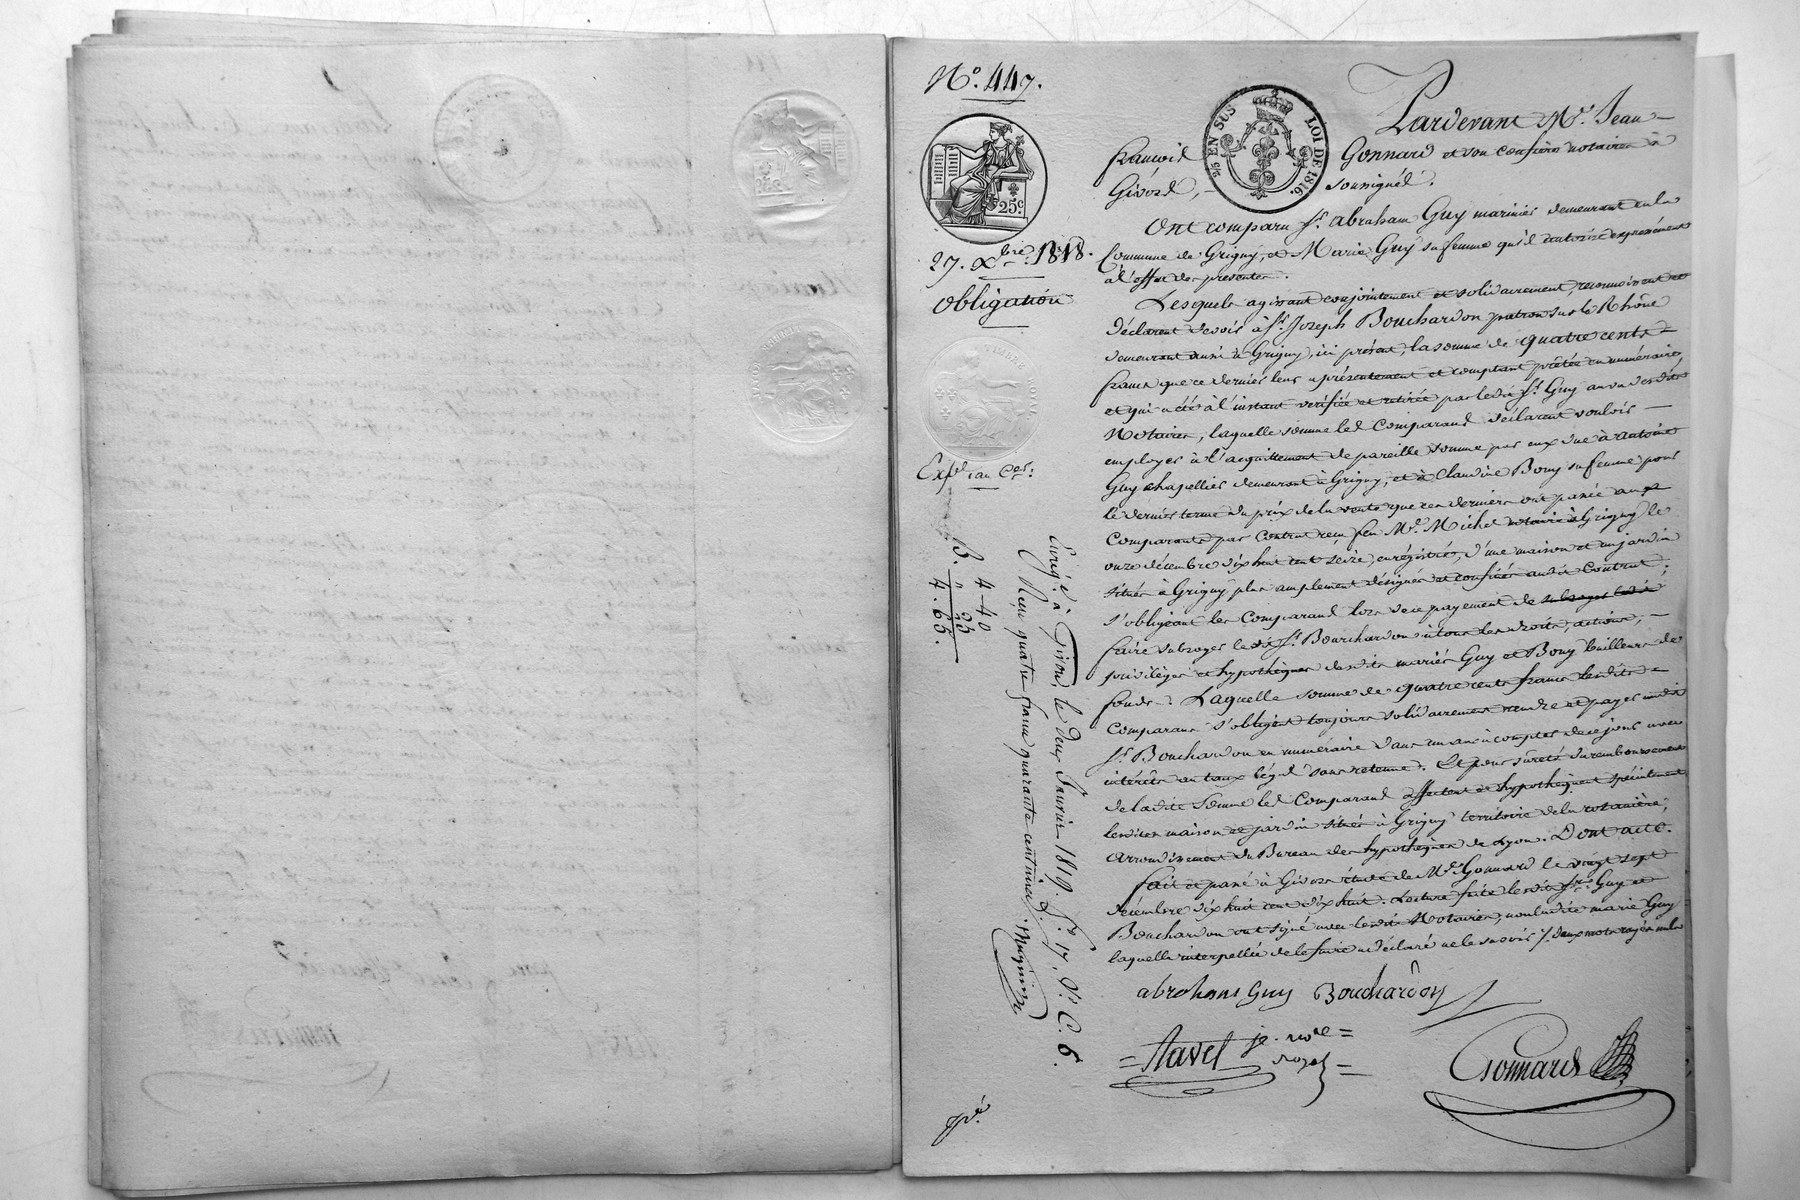 N.º 447.
25.c
27. Xbre. 1818.
obligation
TIMBRE ROYAL
Exp.d au Cer.
B. 4 40
" 25
4. 65.
Enrég.é à Givors, le deux Janvier 1819 f.o 17, V.o C. 6
Reçu quatre francs quarante centimes.
2/5 EN SUS LOI DE 1816.
Pardevant M.e Jean
françois Gonnard et son confrère notaires à
Givors, soussignés.
Ont comparu S.r abraham Guy marinier demeurant en la
Commune de Grigny, et Marie Guy sa femme qu'il autorise expressément
à l'effet des présentes.
Lesquels agissant conjointement et solidairement, reconnoissent et
déclarent devoir à S.r Joseph Bouchardon patron sur le Rhône
demeurant aussi à Grigny, ici présent, la somme de quatre cents
francs que ce dernier leur a présentement et comptant prêtée en numéraire,
et qui a été à l'instant vérifiée et retirée par ledit S.r Guy au vu desdits
Notaires, laquelle somme les Comparans déclarent vouloir
employer à l'acquittement de pareille somme par eux due à antoine
Guy chapellier demeurant à Grigny, et à Claudine Bony sa femme pour
le dernier terme du prix de la vente que ces derniers ont passée aux
Comparants par Contrat reçu feu M.e Michel notaire à Grigny le
onze décembre dix huit cent seize, enregistré, d'une maison et un jardin
situés à Grigny plus amplement désignés et confinés audit Contrat ;
s'obligeant les Comparans lors de ce payement de subroger ledit
faire subroger ledit S.r Bouchardon à tous les droits, actions,
privilèges et hypothèques desdits mariés Guy et Bony bailleurs de
fonds. Laquelle somme de quatre cents francs lesdits
Comparans s'obligent toujours solidairement rendre et payer audit
S.r Bouchardon en numéraire dans un an à compter de ce jour avec
intérêts au taux légal sans retenue. Et pour sûreté du remboursement
de ladite somme les Comparans affectent et hypothèquent spécialement
lesdites maison et jardin situés à Grigny territoire de la rotanière,
arrondissement du Bureau des hypothèques de Lyon. Dont acte.
fait et passé à Givors étude de M.e Gonnard le vingt sept
décembre dix huit cent dix huit. Lecture faite lesdits S.rs Guy et
Bouchardon ont signé avec lesdits Notaires, non ladite marie Guy
laquelle interpellée de le faire a déclaré ne le savoir ./. deux mots rayés nuls
abraham Guy Bouchardon
Navel
Gonnard